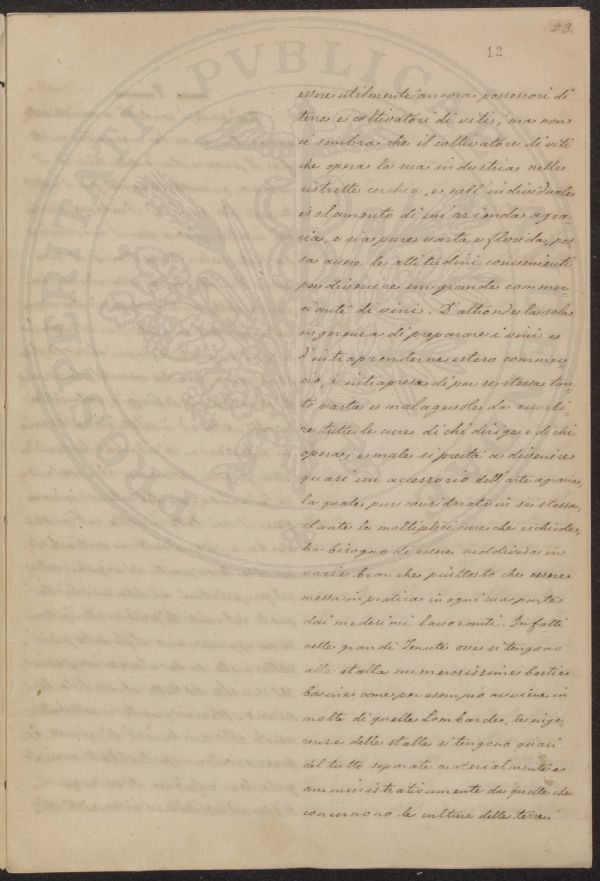 23.
12
essere utilmente ancora possessori di
terre e coltivatori di viti; ma non
ci sembra che il coltivatore di viti
che opera la sua industria nelle
ristrette cerchia, e nell'individuale
isolamento di un'azienda agra-
ria, e sia pure vasta e florida, pos
sa avere le attitudini convenienti
per divenire un grande commer-
ciante di vini. D'altronde la sola
ingerenza di preparare i vini e
d'intraprenderne estero commer-
cio, è intrapresa di per se stessa tan-
to vasta e malagevole da assorbi-
re tutte le cure di chi dirige e di chi
opera; e male si presta a divenire
quasi un accessorio dell'arte agraria,
la quale pur considerata in se stessa,
stante le molteplici cure che richiede,
ha bisogno di essere suddivisa in
varie branche piuttosto che essere
messa in pratica in ogni sua parte
dai medesimi lavoranti. Infatti
nelle grandi Tenute ove si tengono
alla stalla numerosissime bestie
bovine, come per esempio avviene in
molte di quelle Lombarde, le inge-
renze delle stalle si tengono quasi
del tutto separate materialmente e
amministrativamente da quelle che
concernono le culture delle terre.
PROSPERITATI PVBLIC